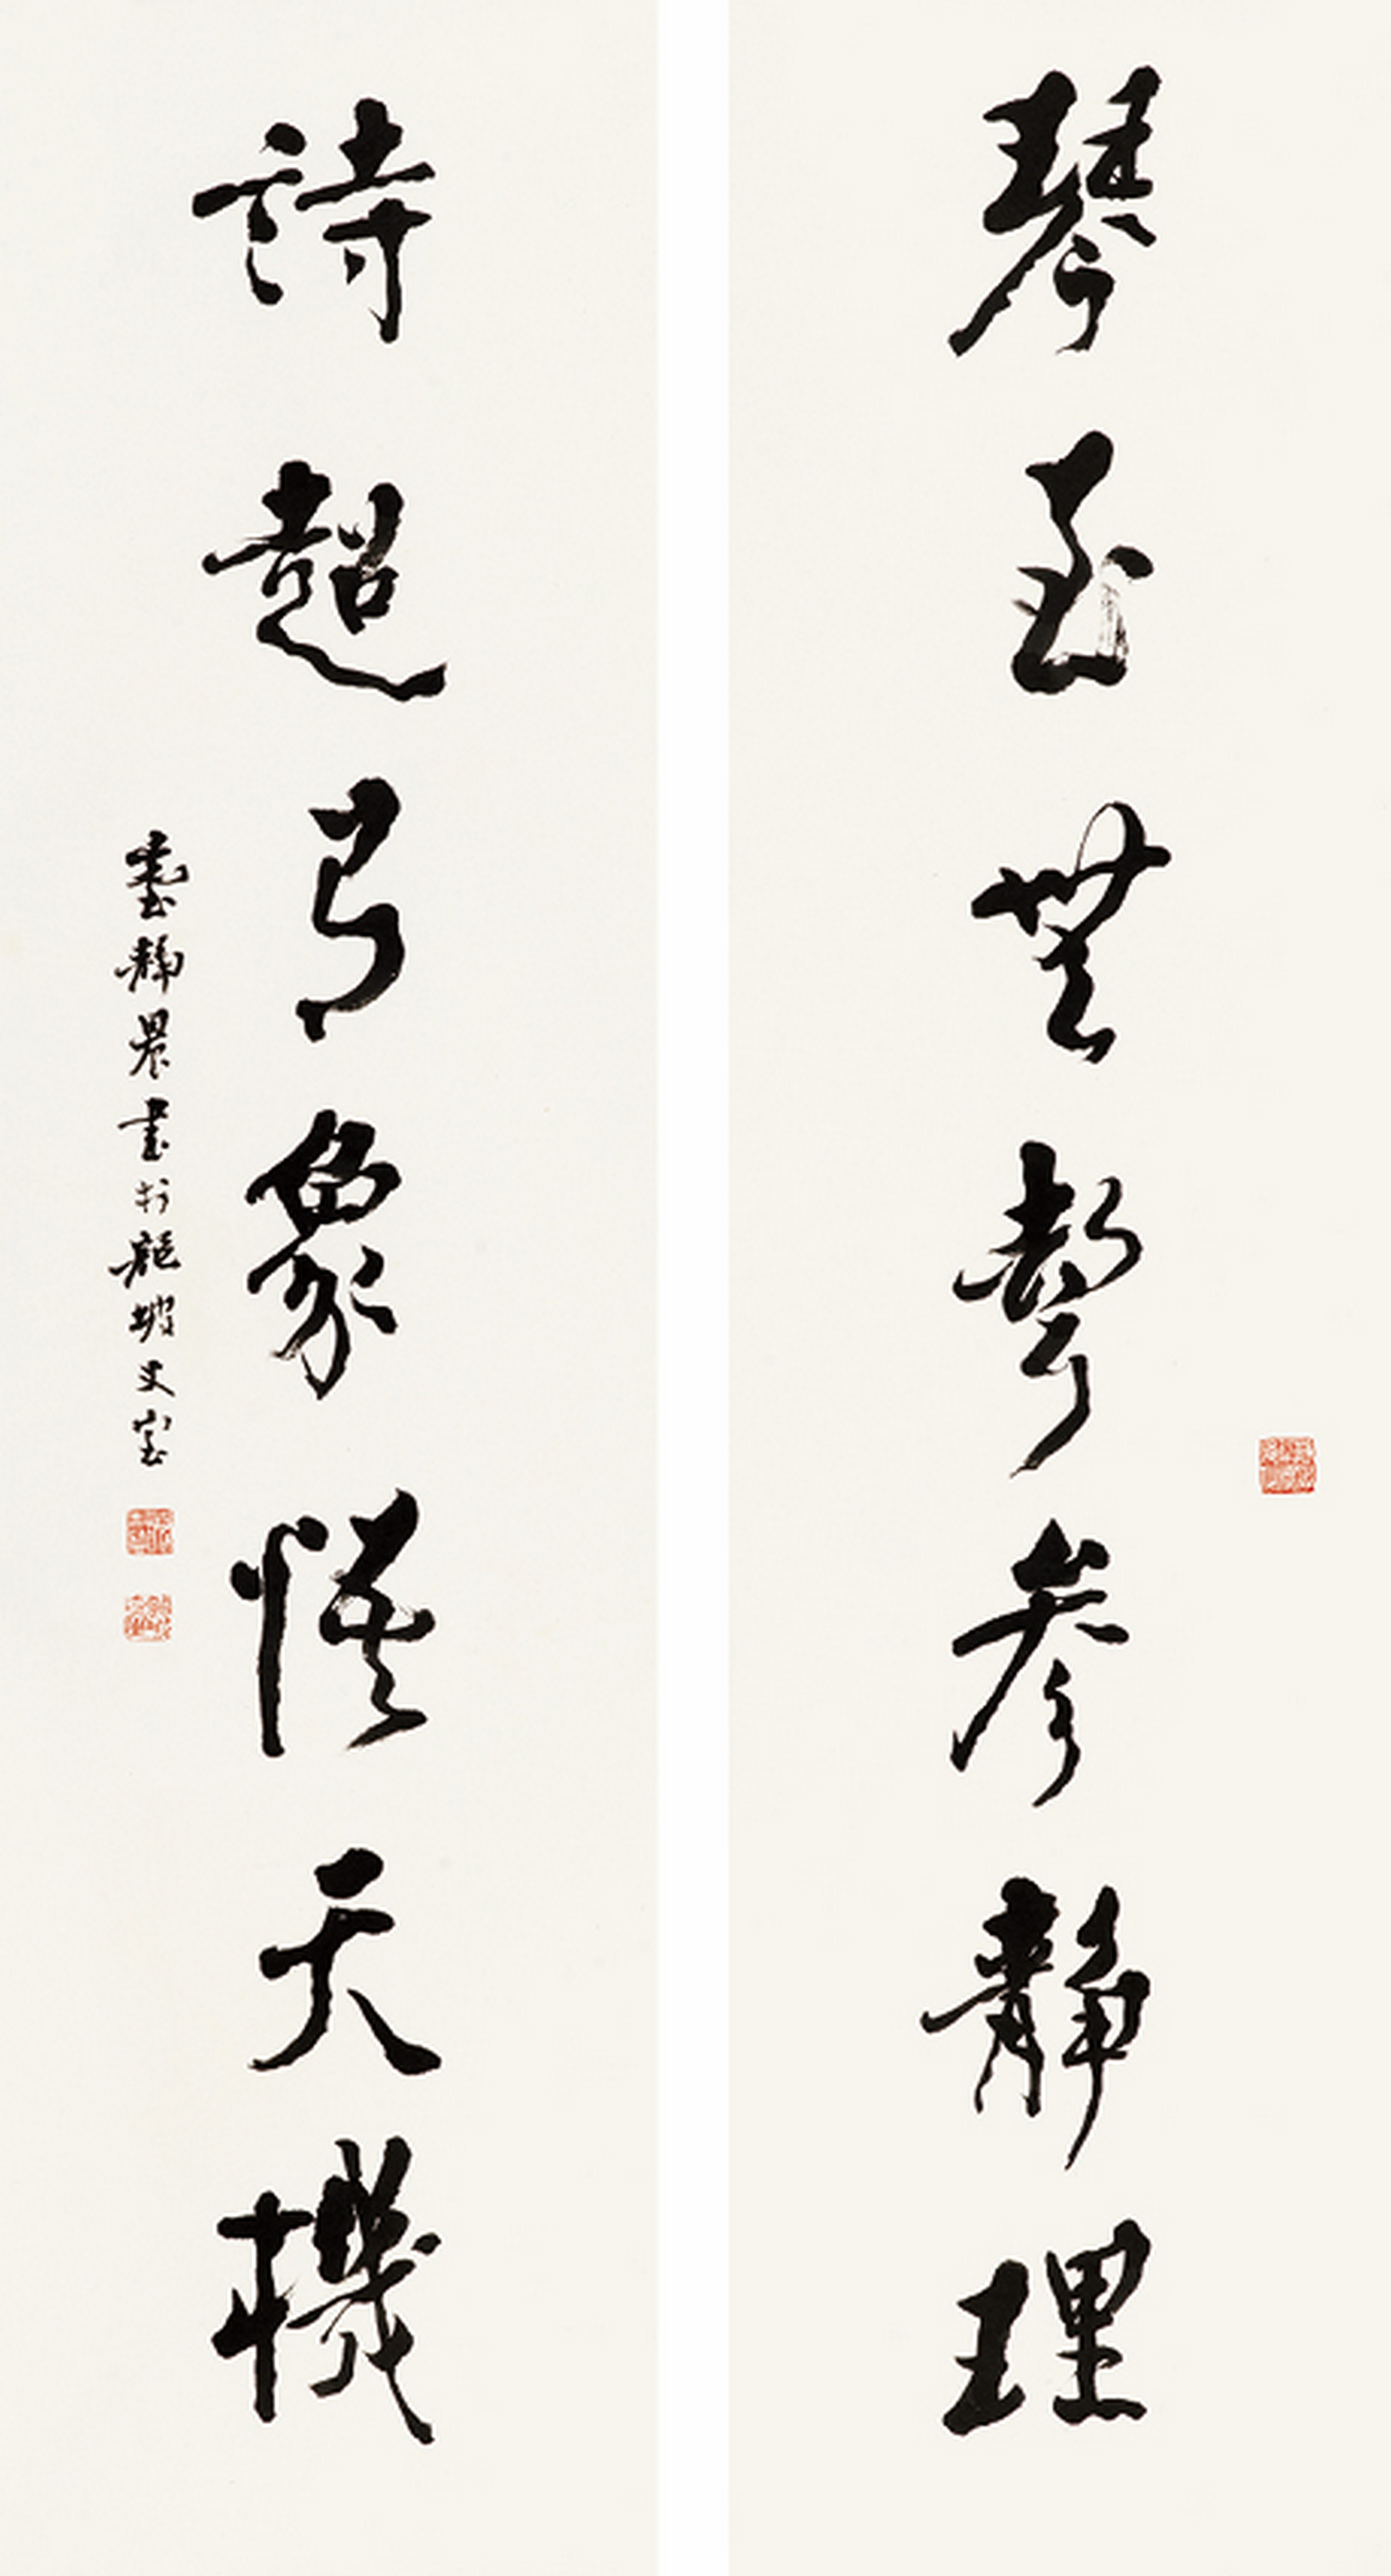 琴至無聲參靜理
詩超象悟天機
臺靜農書於龍坡丈室